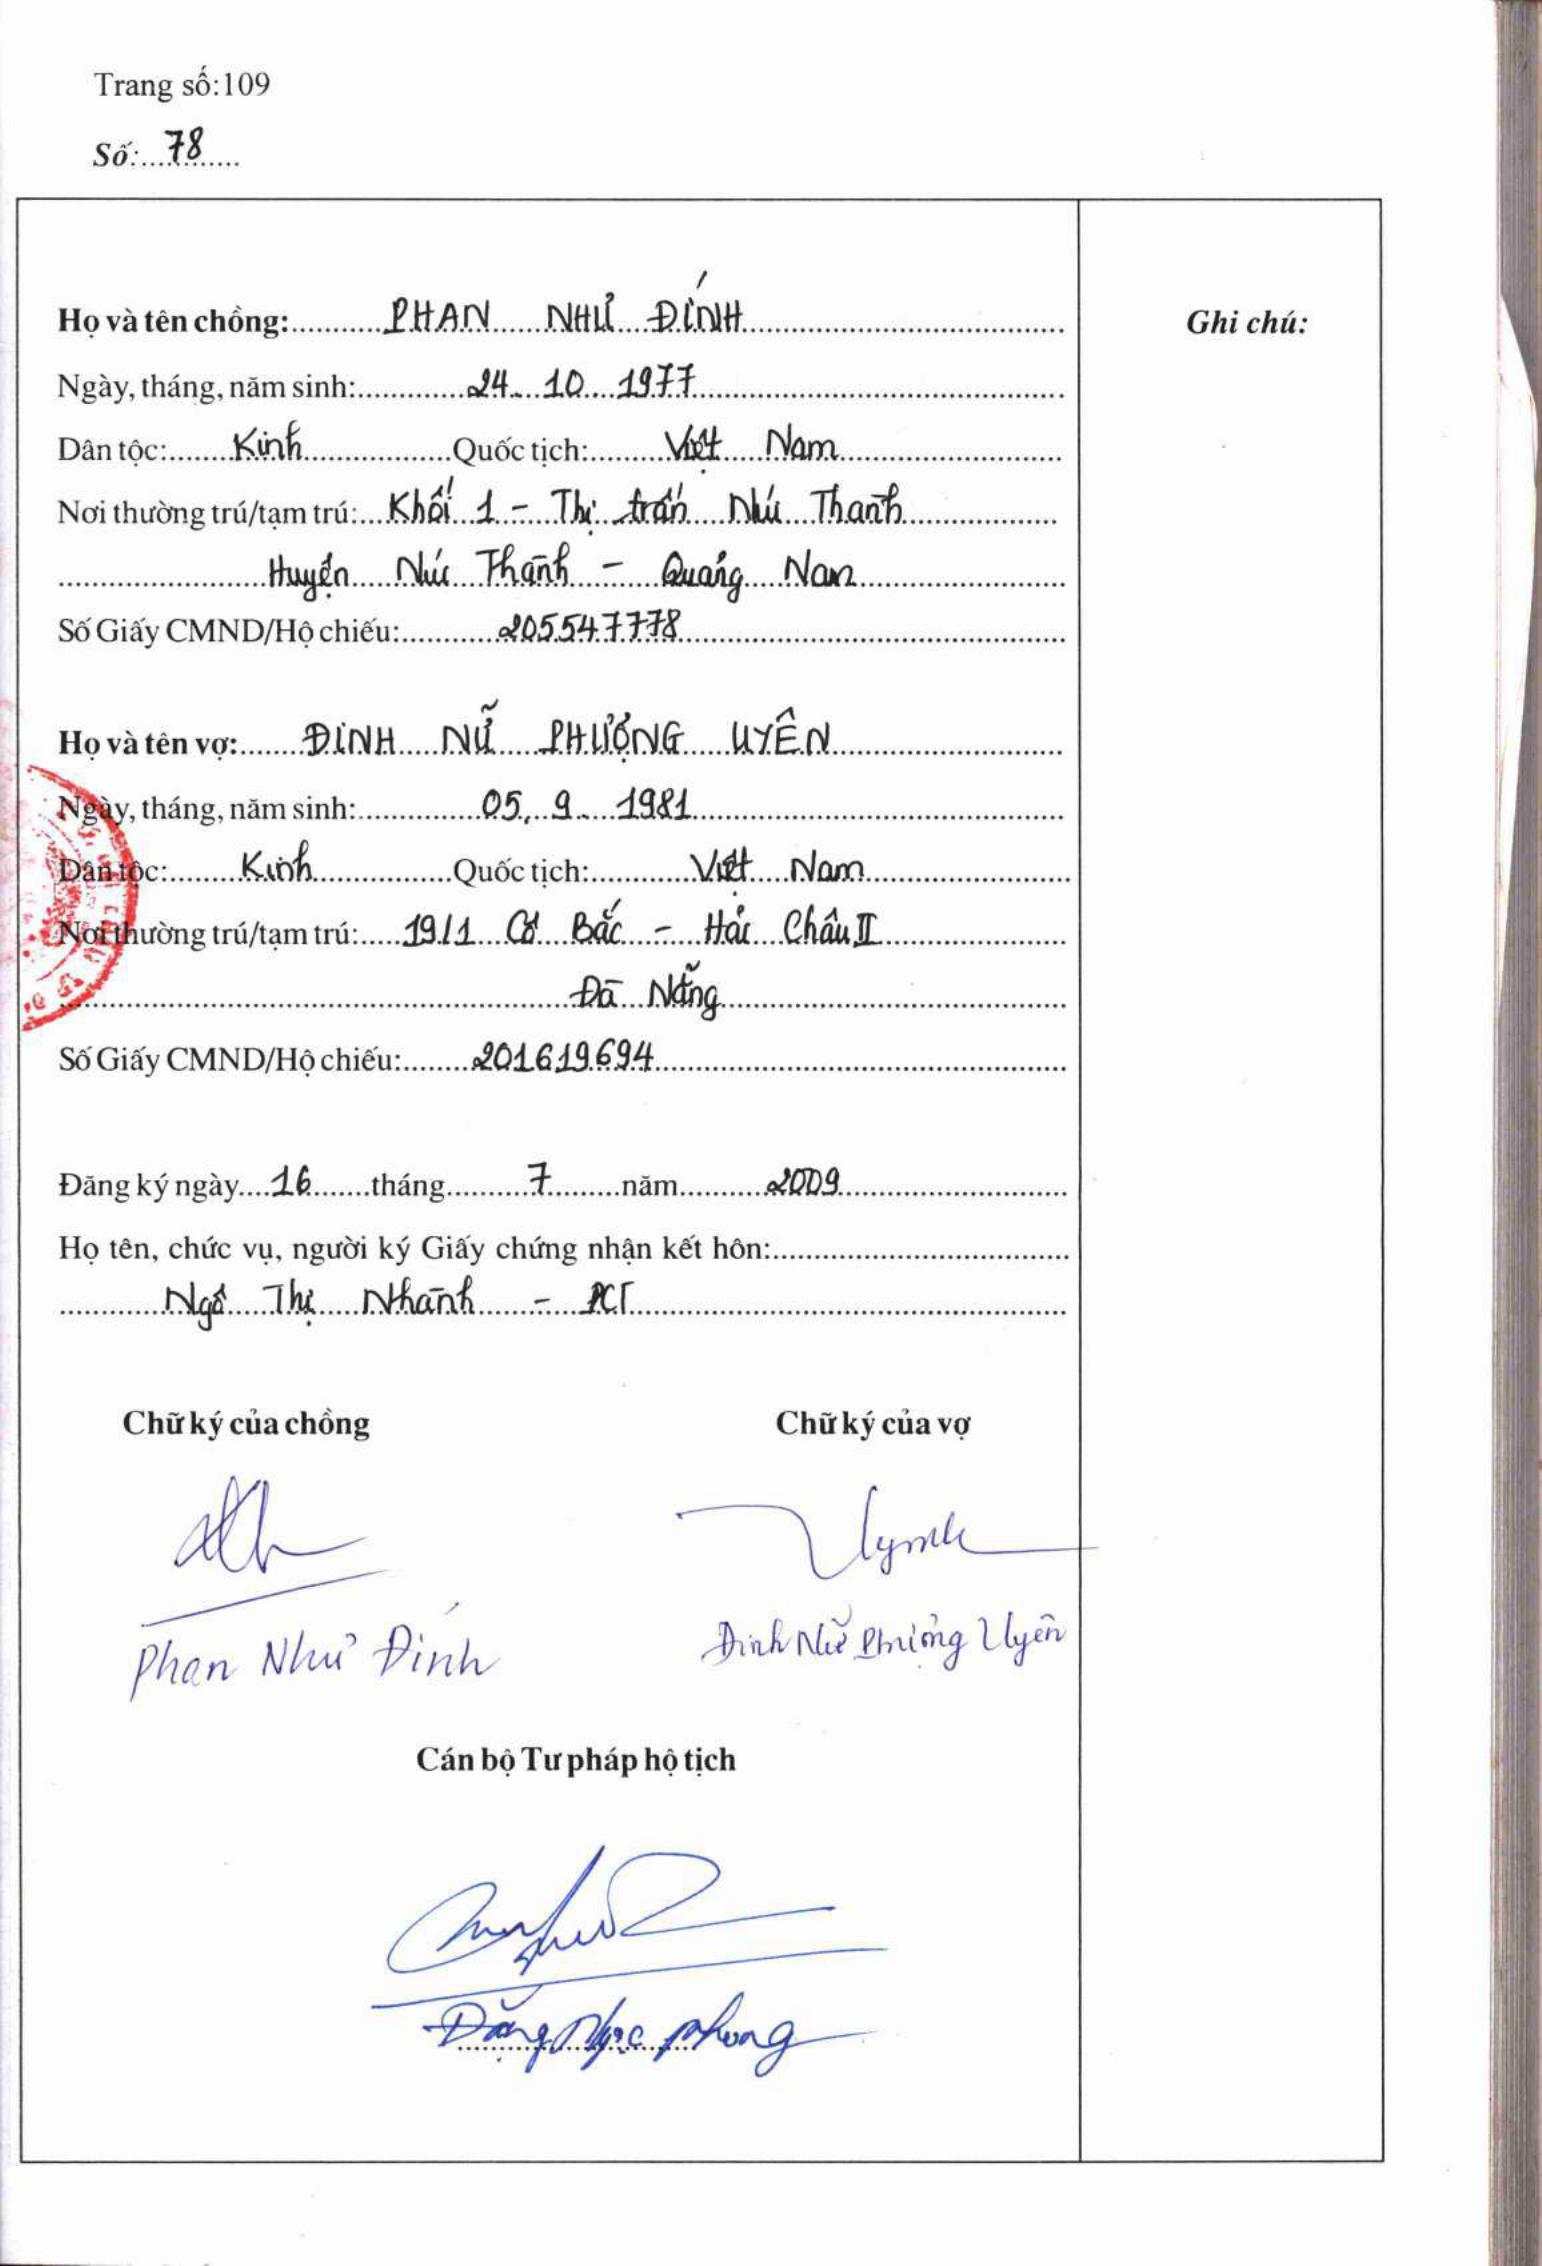 Trang số:109
Số: 78
Họ và tên chồng: PHAN NHƯ ĐÍNH
Ghi chú:
Ngày, tháng, năm sinh: 24 10 1977
Dân tộc: Kinh Quốc tịch: Việt Nam
Nơi thường trú/tạm trú: Khối 1 - Thị trấn Núi Thành
Huyện Núi Thành - Quảng Nam
Số Giấy CMND/Hộ chiếu: 205547778
Họ và tên vợ: ĐINH NỮ PHƯỢNG UYÊN
Ngày, tháng, năm sinh: 05. 9. 1981
Dân tộc: Kinh Quốc tịch: Việt Nam
Nơi thường trú/tạm trú: 19/1 Cô Bắc - Hải Châu II
Đà Nẵng
Số Giấy CMND/Hộ chiếu: 201619694
Đăng ký ngày 16 tháng 7 năm 2009
Họ tên, chức vụ, người ký Giấy chứng nhận kết hôn:
Ngô Thị Nhành - PCT
Chữ ký của chồng Chữ ký của vợ
Phan Như Đính Đinh Nữ Phượng Uyên
Cán bộ Tư pháp hộ tịch
Đặng Ngọc Phong